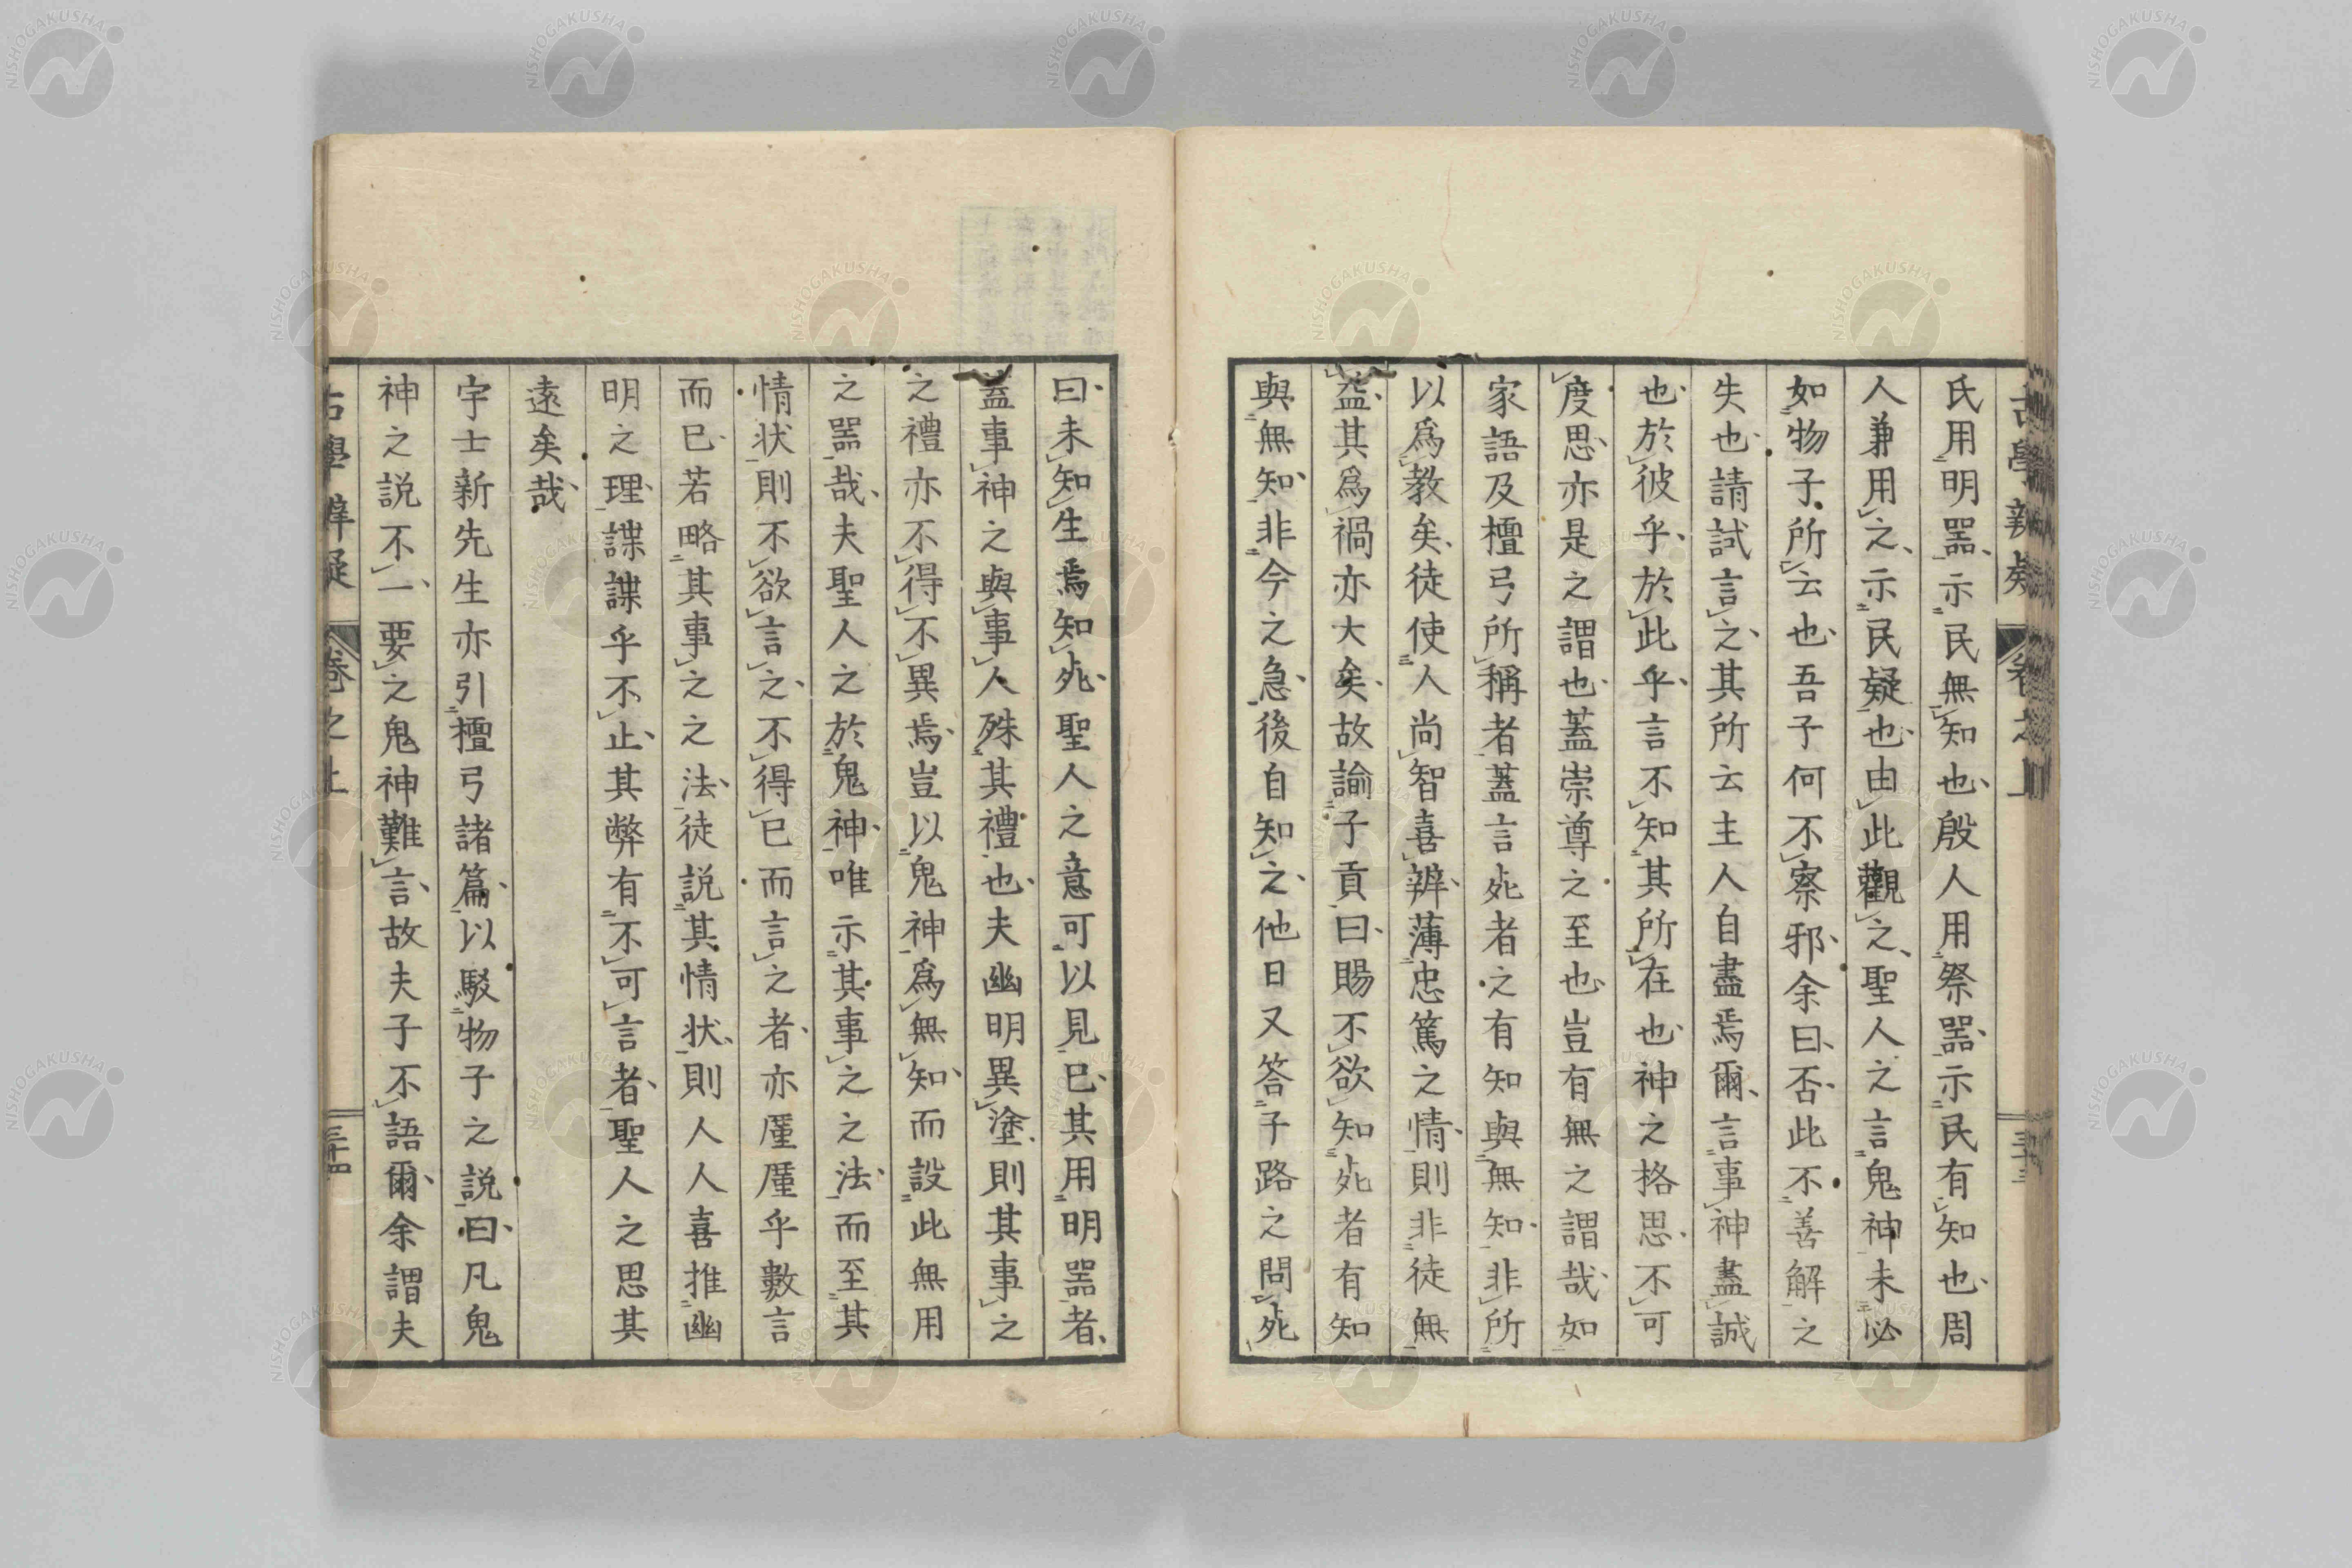 古學辨疑 卷之上 三十三
氏用明器示民無知也殷人用祭器示民有知也周
人兼用之示民疑也由此觀之聖人之言鬼神未必
如物子所云也吾子何不察邪余曰否此不善解之
失也請試言之其所云主人自盡焉爾言事神盡誠
也於彼乎於此乎言不知其所在也神之格思不可
度思亦是之謂也蓋崇尊之至也豈有無之謂哉如
家語及檀弓所稱者蓋言死者之有知與無知非所
以爲教矣徒使人尚智喜辨薄忠篤之情則非徒無
益其爲禍亦大矣故諭子貢曰賜不欲知死者有知
與無知非今之急後自知之他日又答子路之問死
曰未知生焉知死聖人之意可以見已其用明器者
蓋事神之與事人殊其禮也夫幽明異塗則其事之
之禮亦不得不異焉豈以鬼神爲無知而設此無用
之器哉夫聖人之於鬼神唯示其事之之法而至其
情狀則不欲言之不得已而言之者亦厪厪乎數言
而已若略其事之之法徒説其情狀則人人喜推幽
明之理諜諜乎不止其弊有不可言者聖人之思其
遠矣哉
宇士新先生亦引檀弓諸篇以駁物子之説曰凡鬼
神之説不一要之鬼神難言故夫子不語爾余謂夫
古學辨疑 卷之上 三十四
NISHOGAKUSHA